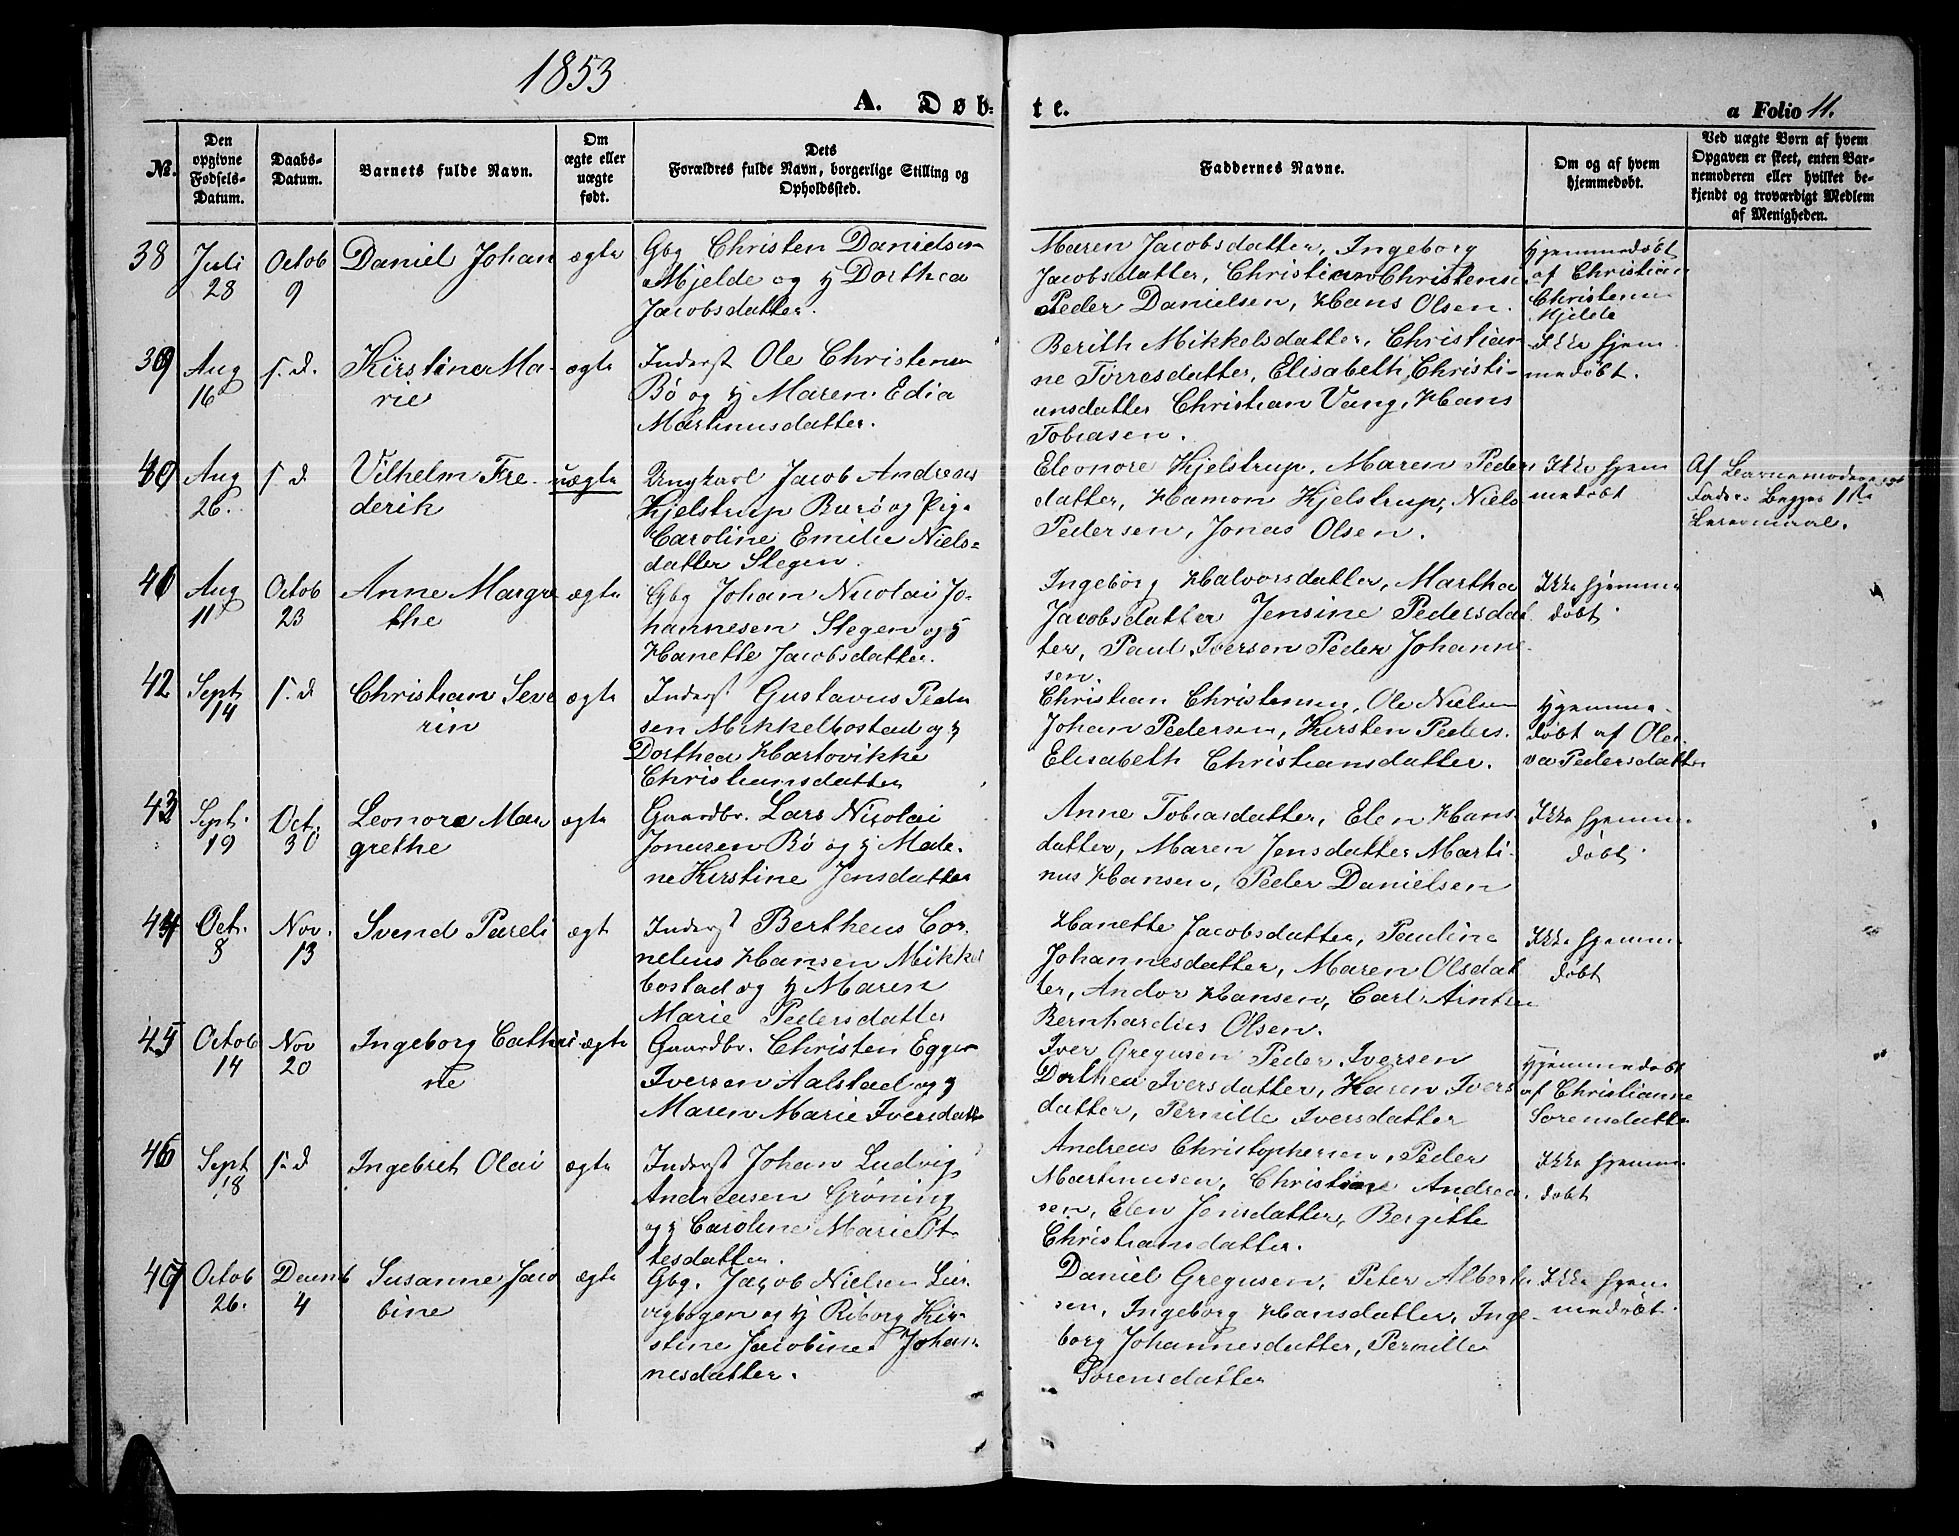 1853
A. Døb-
te.
a Folio 11.
No.
Den opgivne Fødsels-Datum.
Daabs-Datum.
Barnets fulde Navn.
Om ægte eller uægte født.
Dets Forældres fulde Navn, borgerlige Stilling og Opholdssted.
Faddernes Navne.
Om og af hvem hjemmedøbt.
Ved uægte Børn af hvem Opgaven er skeet, enten Barnemoderen eller hvilket bekjendt og troværdigt Medlem af Menigheden.
38
Juli 28
Octob 9
Daniel Johan
ægte
Gbg Christen Danielsen
Mjelde og H Dorthea
Jacobsdatter.
Maren Jacobsdatter, Ingeborg
Jacobsdatter, Christian Christensen
Peder Danielsen, Hans Olsen.
Hjemmedøbt
af Christian
Christensen
Mjelde
39
Aug 16
s. d.
Kirstine Ma-
rie
ægte
Inderst Ole Christensen
Bø og H Maren Edia
Martinusdatter.
Berith Mikkelsdatter, Christian-
ne Torresdatter, Elisabeth Christi-
ansdatter Christian Vang, Hans
Tobiasen.
Ikke hjem-
medøbt.
40
Aug 26.
s. d
Vilhelm Fre-
derik
uægte
Ungkarl Jacob Andreas
Hjelstrup Burø og Pige
Caroline Emilie Niels-
datter Stegen.
Eleonore Hjelstrup, Maren Peders
datter, Hamon Hjelstrup, Niels
Pedersen, Jonas Olsen.
Ikke hjem
medøbt
Af Barnemoderen
Fader. Begges 1ste
Leiermaal.
41
Aug 11
Octob 23
Anne Margre
the
ægte
Gbg Johan Nicolai Jo-
hannesen Stegen og H
Hanette Jacobsdatter.
Ingeborg Halvorsdatter, Martha
Jacobsdatter Jensine Pedersdat
ter, Paul Iversen Peder Johanne-
sen.
Ikke hjemme
døbt
42
Sept 14
s. d
Christian Seve
rin
ægte
Inderst Gustavus Peder
sen Mikkelbostad og H
Dorthea Hartvikke
Christiansdatter
Christian Christensen, Ole Nielsen
Johan Pedersen, Kirsten Peders.
Elisabeth Christiansdatter.
Hjemme-
døbt af Ole-
va Pedersdatter
43
Sept. 19
Oct. 30
Leonora Mar
grethe
ægte
Gaardbr. Lars Nicolai
Jonasen Bø og H Made-
ne Kirstine Jensdatter
Anne Tobiasdatter, Elen Hans-
datter, Maren Jensdatter Marti-
nus Hansen, Peder Danielsen
Ikke hjemme-
døbt
44
Oct. 8
Nov. 13
Svend Pareli
ægt
Inderst Bertheus Cor-
nelius Hansen Mikkel
bostad og H Maren
Marie Pedersdatter
Hanette Jacobsdatter, Pauline
Johannesdatter, Maren Olsdat
ter, Andor Hansen, Carl
Bernhardus Olsen.
Ikke hjemme-
døbt
45
Octob 14
Nov 20
Ingeborg Cathri-
ne
ægte
Gaardbr. Christen Egger
Iversen Aalstad og H
Maren Marie Iversdatt
Iver Gregusen Peder Iversen
Dorthea Iversdatter, Karen Ivers
datter, Pernille Iversdatter
Hjemmedøbt
af Christianne
Sorensdatter
46
Sept 18
s. d
Ingebret Olai
ægte
Inderst Johan Ludvig
Andreasen Grøning
og H Caroline Marie Ot-
tesdatter.
Andreas Christophersen, Peder
Martinusen, Christine Andrea-
sen, Elen Jonsdatter, Bergitte
Christiansdatter.
Ikke hjemme-
døbt
47
Octob 26.
Decemb 4
Susanne Jaco
bine
ægte
Gbg. Jacob Nielsen Leir-
vigbogen og H Riborg Kir-
stine Jacobine Johan-
nesdatter.
Daniel Gregusen, Peter Albert-
sen, Ingeborg Hansdatter, Inge-
borg Johannesdatter, Pernille
Sorensdatter
Ikke hjem
medøbt.